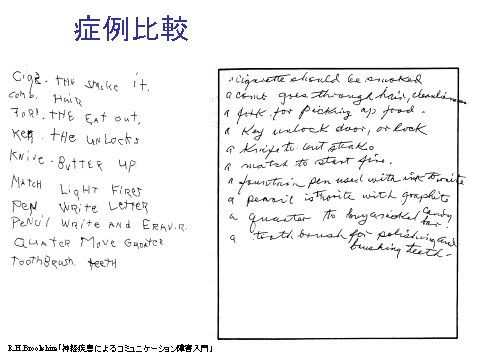 症例比較
CIGE. THE SMOKE IT.
COMB. HAIR
FORK. THE EAT OUT.
KEY. THE UNLOCKS
KNIVE. BUTTER UP
MATCH LIGHT FIRES
PEN WRITE LETTER
PENCIL WRITE AND
QUATER MOVE QUATER
TOOTHBRUSH. TEETH
a cigarette should be smoked
a comb goes through hair,
a fork for picking up food.
a key unlock door, or lock
a knife to cut steak.
a match to start fire.
a fountain pen used with ink to write
a pencil is to write with graphite
a quarter to buy candy bar.
a toothbrush for polishing and
brushing teeth.
R.H.Brookshire「神経疾患によるコミュニケーション障害入門」